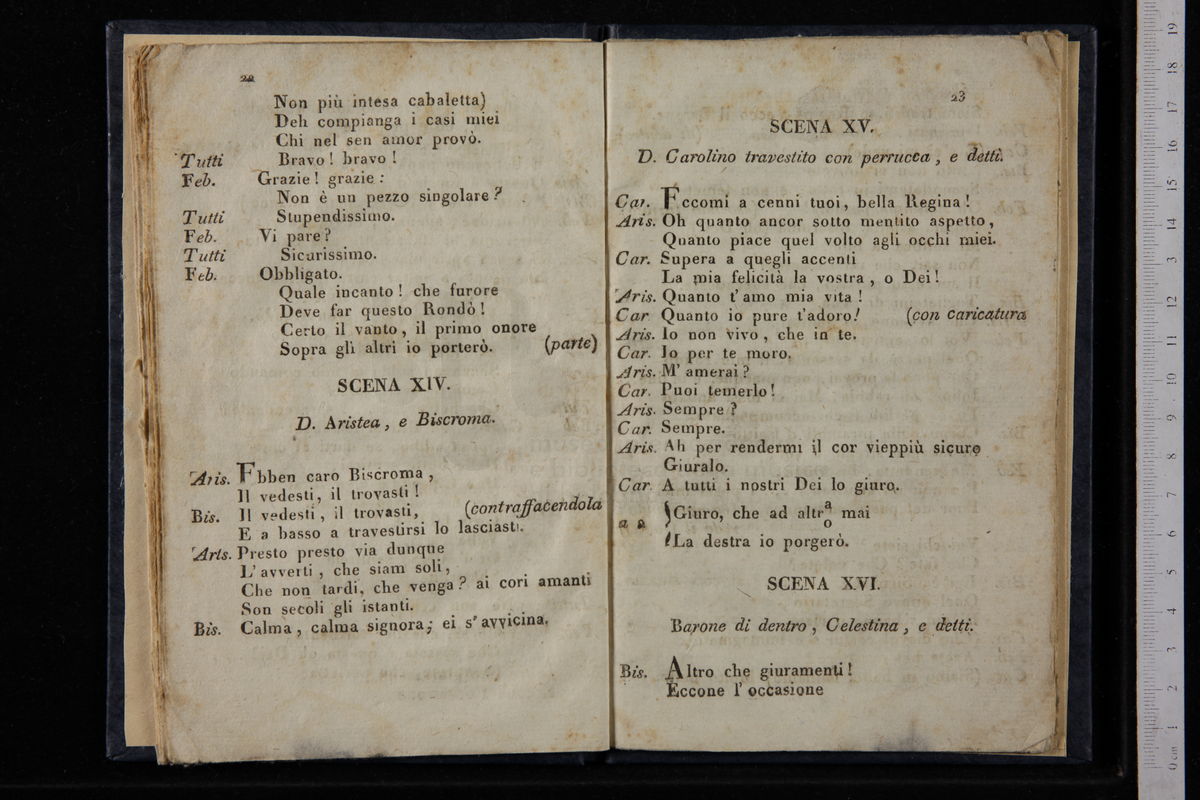 22
Non più intesa cabaletta)
Deh compianga i casi miei
Chi nel sen amor provò.
Tutti Bravo! bravo!
Feb. Grazie! grazie:
Non è un pezzo singolare?
Tutti Stupendissimo.
Feb. Vi pare?
Tutti Sicurissimo.
Feb. Obbligato.
Quale incanto! che furore
Deve far questo Rondò!
Certo il vanto, il primo onore
Sopra gli altri io porterò. (parte)
SCENA XIV.
D. Aristea, e Biscroma.
Aris. Ebben caro Biscroma,
Il vedesti, il trovasti!
Bis. Il vedesti, il trovasti, (contraffacendola
E a basso a travestirsi lo lasciasti.
Aris. Presto presto via dunque
L'avverti, che siam soli,
Che non tardi, che venga? ai cori amanti
Son secoli gli istanti.
Bis. Calma, calma signora; ei s'avvicina.
23
SCENA XV.
D. Carolino travestito con perrucca, e detti.
Car. Eccomi a cenni tuoi, bella Regina!
Aris. Oh quanto ancor sotto mentito aspetto,
Quanto piace quel volto agli occhi miei.
Car. Supera a quegli accenti
La mia felicità la vostra, o Dei!
Aris. Quanto t'amo mia vita!
Car Quanto io pure t'adoro! (con caricatura
Aris. Io non vivo, che in te.
Car. Io per te moro.
Aris. M'amerai?
Car. Puoi temerlo!
Aris. Sempre?
Car. Sempre.
Aris. Ah per rendermi il cor vieppiù sicuro
Giuralo.
Car. A tutti i nostri Dei lo giuro.
a 2 Giuro, che ad altra/o mai
La destra io porgerò.
SCENA XVI.
Barone di dentro, Celestina, e detti.
Bis. Altro che giuramenti!
Eccone l'occasione
0 cm 1 2 3 4 5 6 7 8 9 10 11 12 13 14 15 16 17 18 19